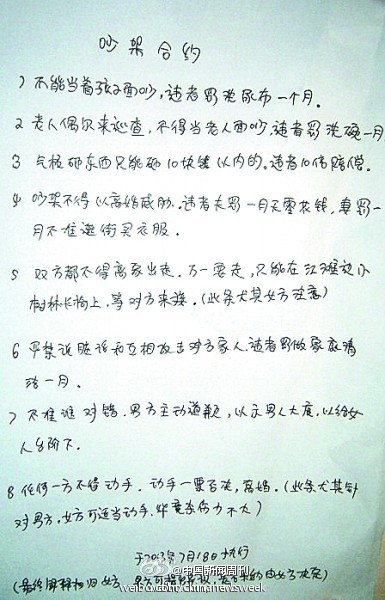 吵架合约
1 不能当着孩子面吵,违者罚洗尿布一个月.
2 老人偶尔来巡查,不得当老人面吵,违者罚洗碗一月
3 气极砸东西只能砸10块钱以内的,违者10倍赔偿.
4 吵架不得以离婚威胁.违者夫罚一月无零花钱,妻罚一
月不准逛街买衣服.
5 双方都不得离家出走.万一要走,只能在江滩边小
树林长椅上,等对方来接.(此条尤其女方注意)
6 严禁说脏话和互相攻击对方家人,违者罚做家庭清
洁一月.
7 不准谁对错.男方主动道歉,以示男人大度,以给女
人台阶下.
8 任何一方不得动手.动手一票否决,离婚.(此条尤其针
对男方,女方可适当动手.毕竟杀伤力不大)
于2013年7月18日执行
(最终解释权归女方,男方可
@中国新闻周刊
weibo.com/chinanewsweek